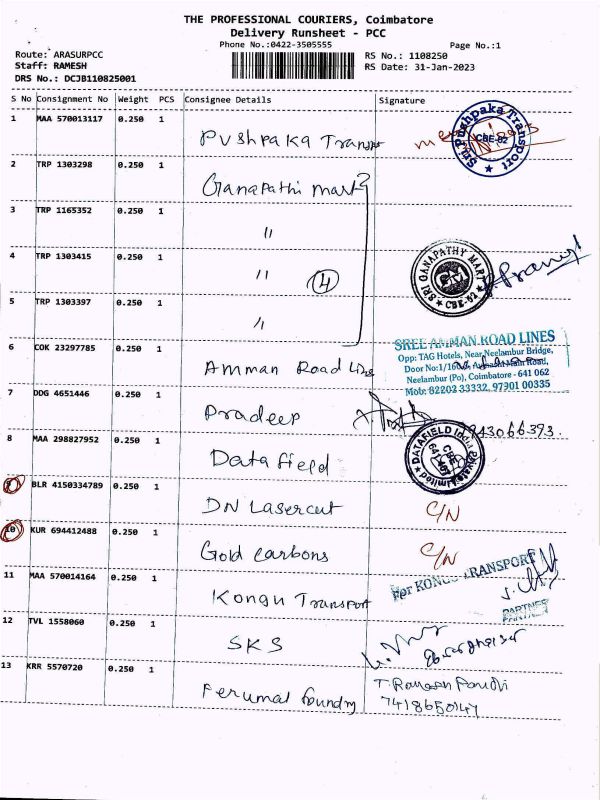 THE PROFESSIONAL COURIERS, Coimbatore
Delivery Runsheet - PCC
Phone No.:0422-3505555
Page No.:1
Route: ARASURPCC
RS No.: 1108250
Staff: RAMESH
RS Date: 31-Jan-2023
DRS No.: DCJB110825001
S No Consignment No Weight PCS Consignee Details Signature
1 MAA 570013117 0.250 1 Pushpaka Transport
Sri Pushpaka Transport CBE-62
2 TRP 1303298 0.250 1 Ganapathi mart
3 TRP 1165352 0.250 1 "
4 TRP 1303415 0.250 1 " 4
SRI GANAPATHY MART CBE-62
5 TRP 1303397 0.250 1 "
6 COK 23297785 0.250 1 Amman Road Line
SREE AMMAN ROAD LINES
Opp: TAG Hotels, Near Neelambur Bridge,
Main Road,
Neelambur (Po), Coimbatore - 641 062
Mob: 82202 33332, 97901 00335
7 DDG 4651446 0.250 1 Pradeep
8 MAA 298827952 0.250 1 Datafield
DATAFIELD India Private Limited
9 BLR 4150334789 0.250 1 DN Lasercut C/N
10 KUR 694412488 0.250 1 Gold carbons C/N
11 MAA 570014164 0.250 1 Kongu Transport
For KONGU TRANSPORT
PARTNER
12 TVL 1558060 0.250 1 SKS
13 KRR 5570720 0.250 1 Perumal foundry
T. Ramesh Pandi
7418650147